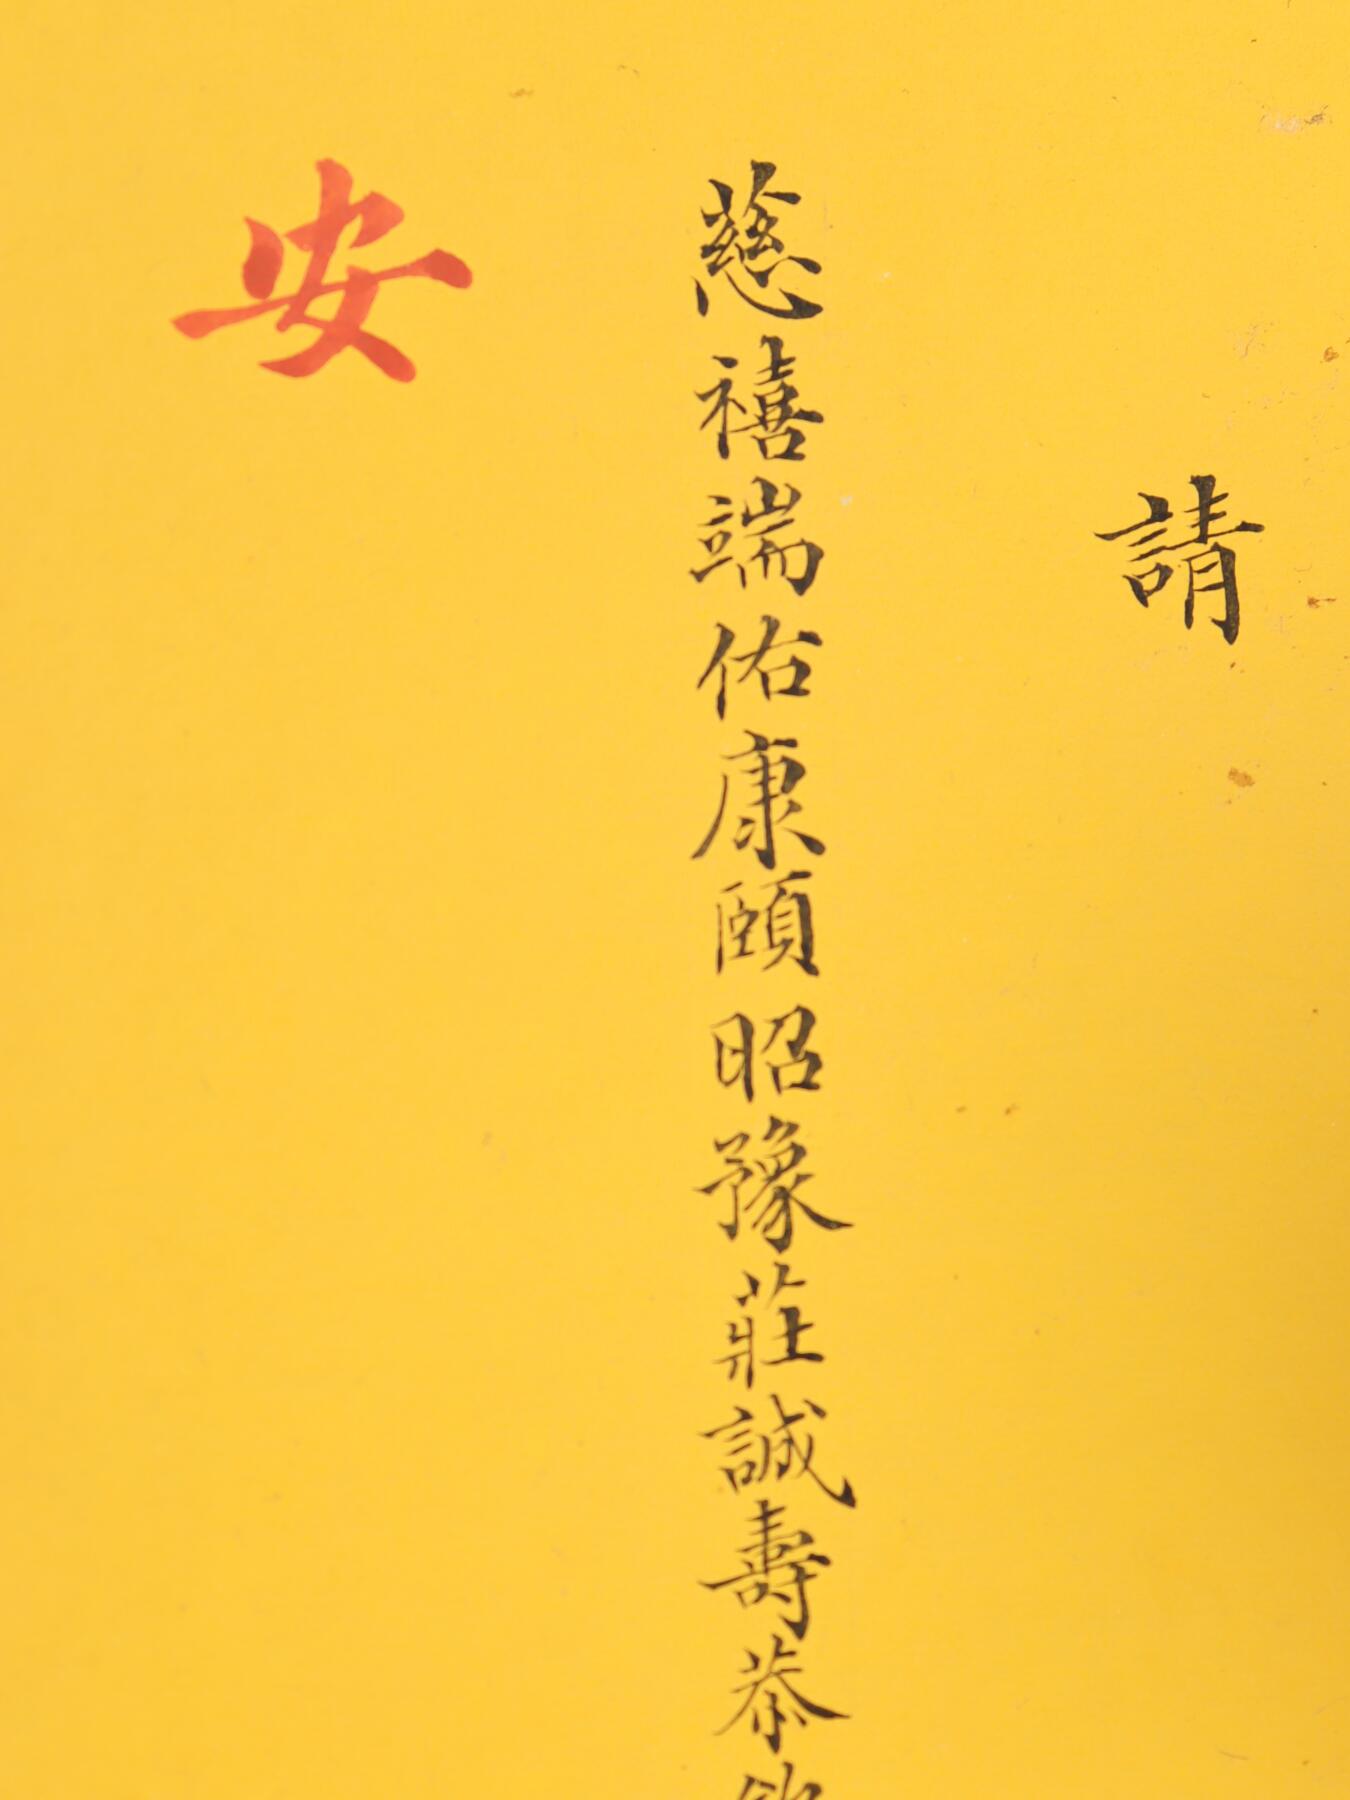 請
慈禧端佑康頤昭豫莊誠壽恭
安